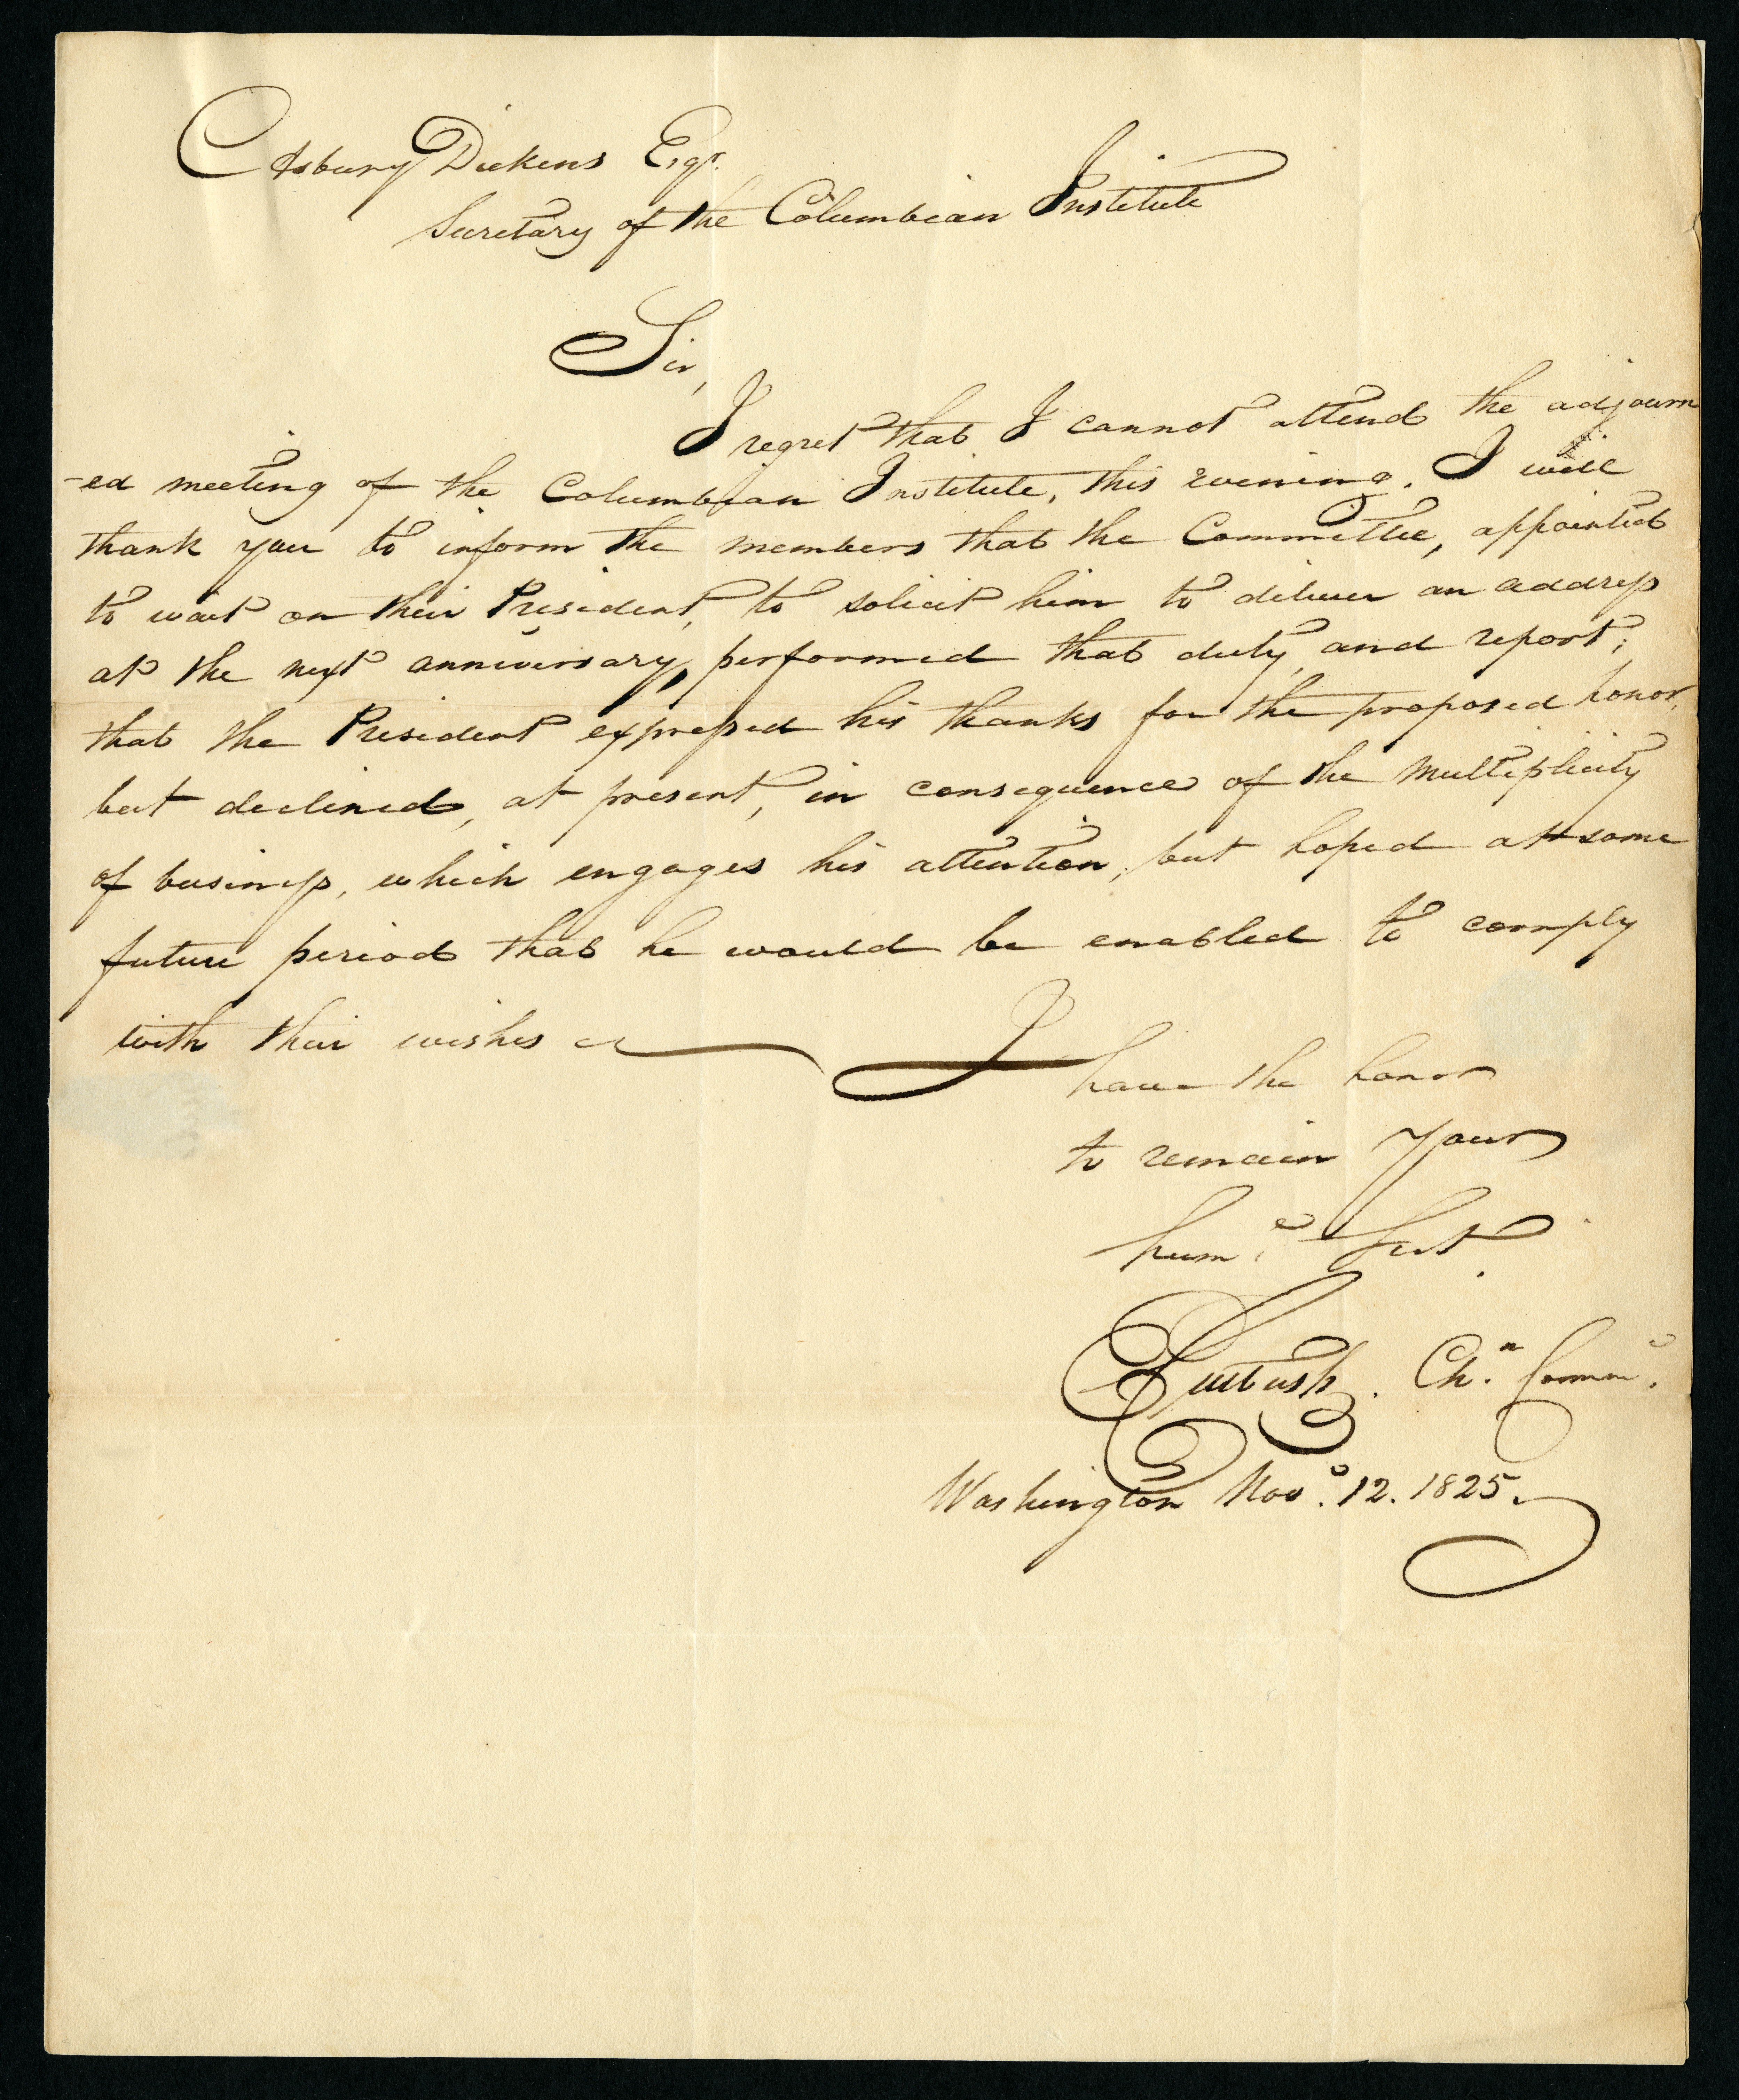 Asbury Dickens Esqr.
Secretary of the Columbian Institute
Sir,
I regret that I cannot attend the adjourn
-ed meeting of the Columbian Institute, this evening. I will
thank you to inform the members that the Committee, appointed
to wait on their President, to solicit him to deliver an address
at the next anniversary, performed that duty, and report;
that the President expressed his thanks for the proposed honor,
but declined, at present, in consequence of the multiplicity
of business, which engages his attention; but hoped at some
future period that he would be enabled to comply
with their wishes
I have the honor
to remain Your
hum.e Sert.
Cutbush. Chn. Comme.
Washington Nov. 12. 1825.